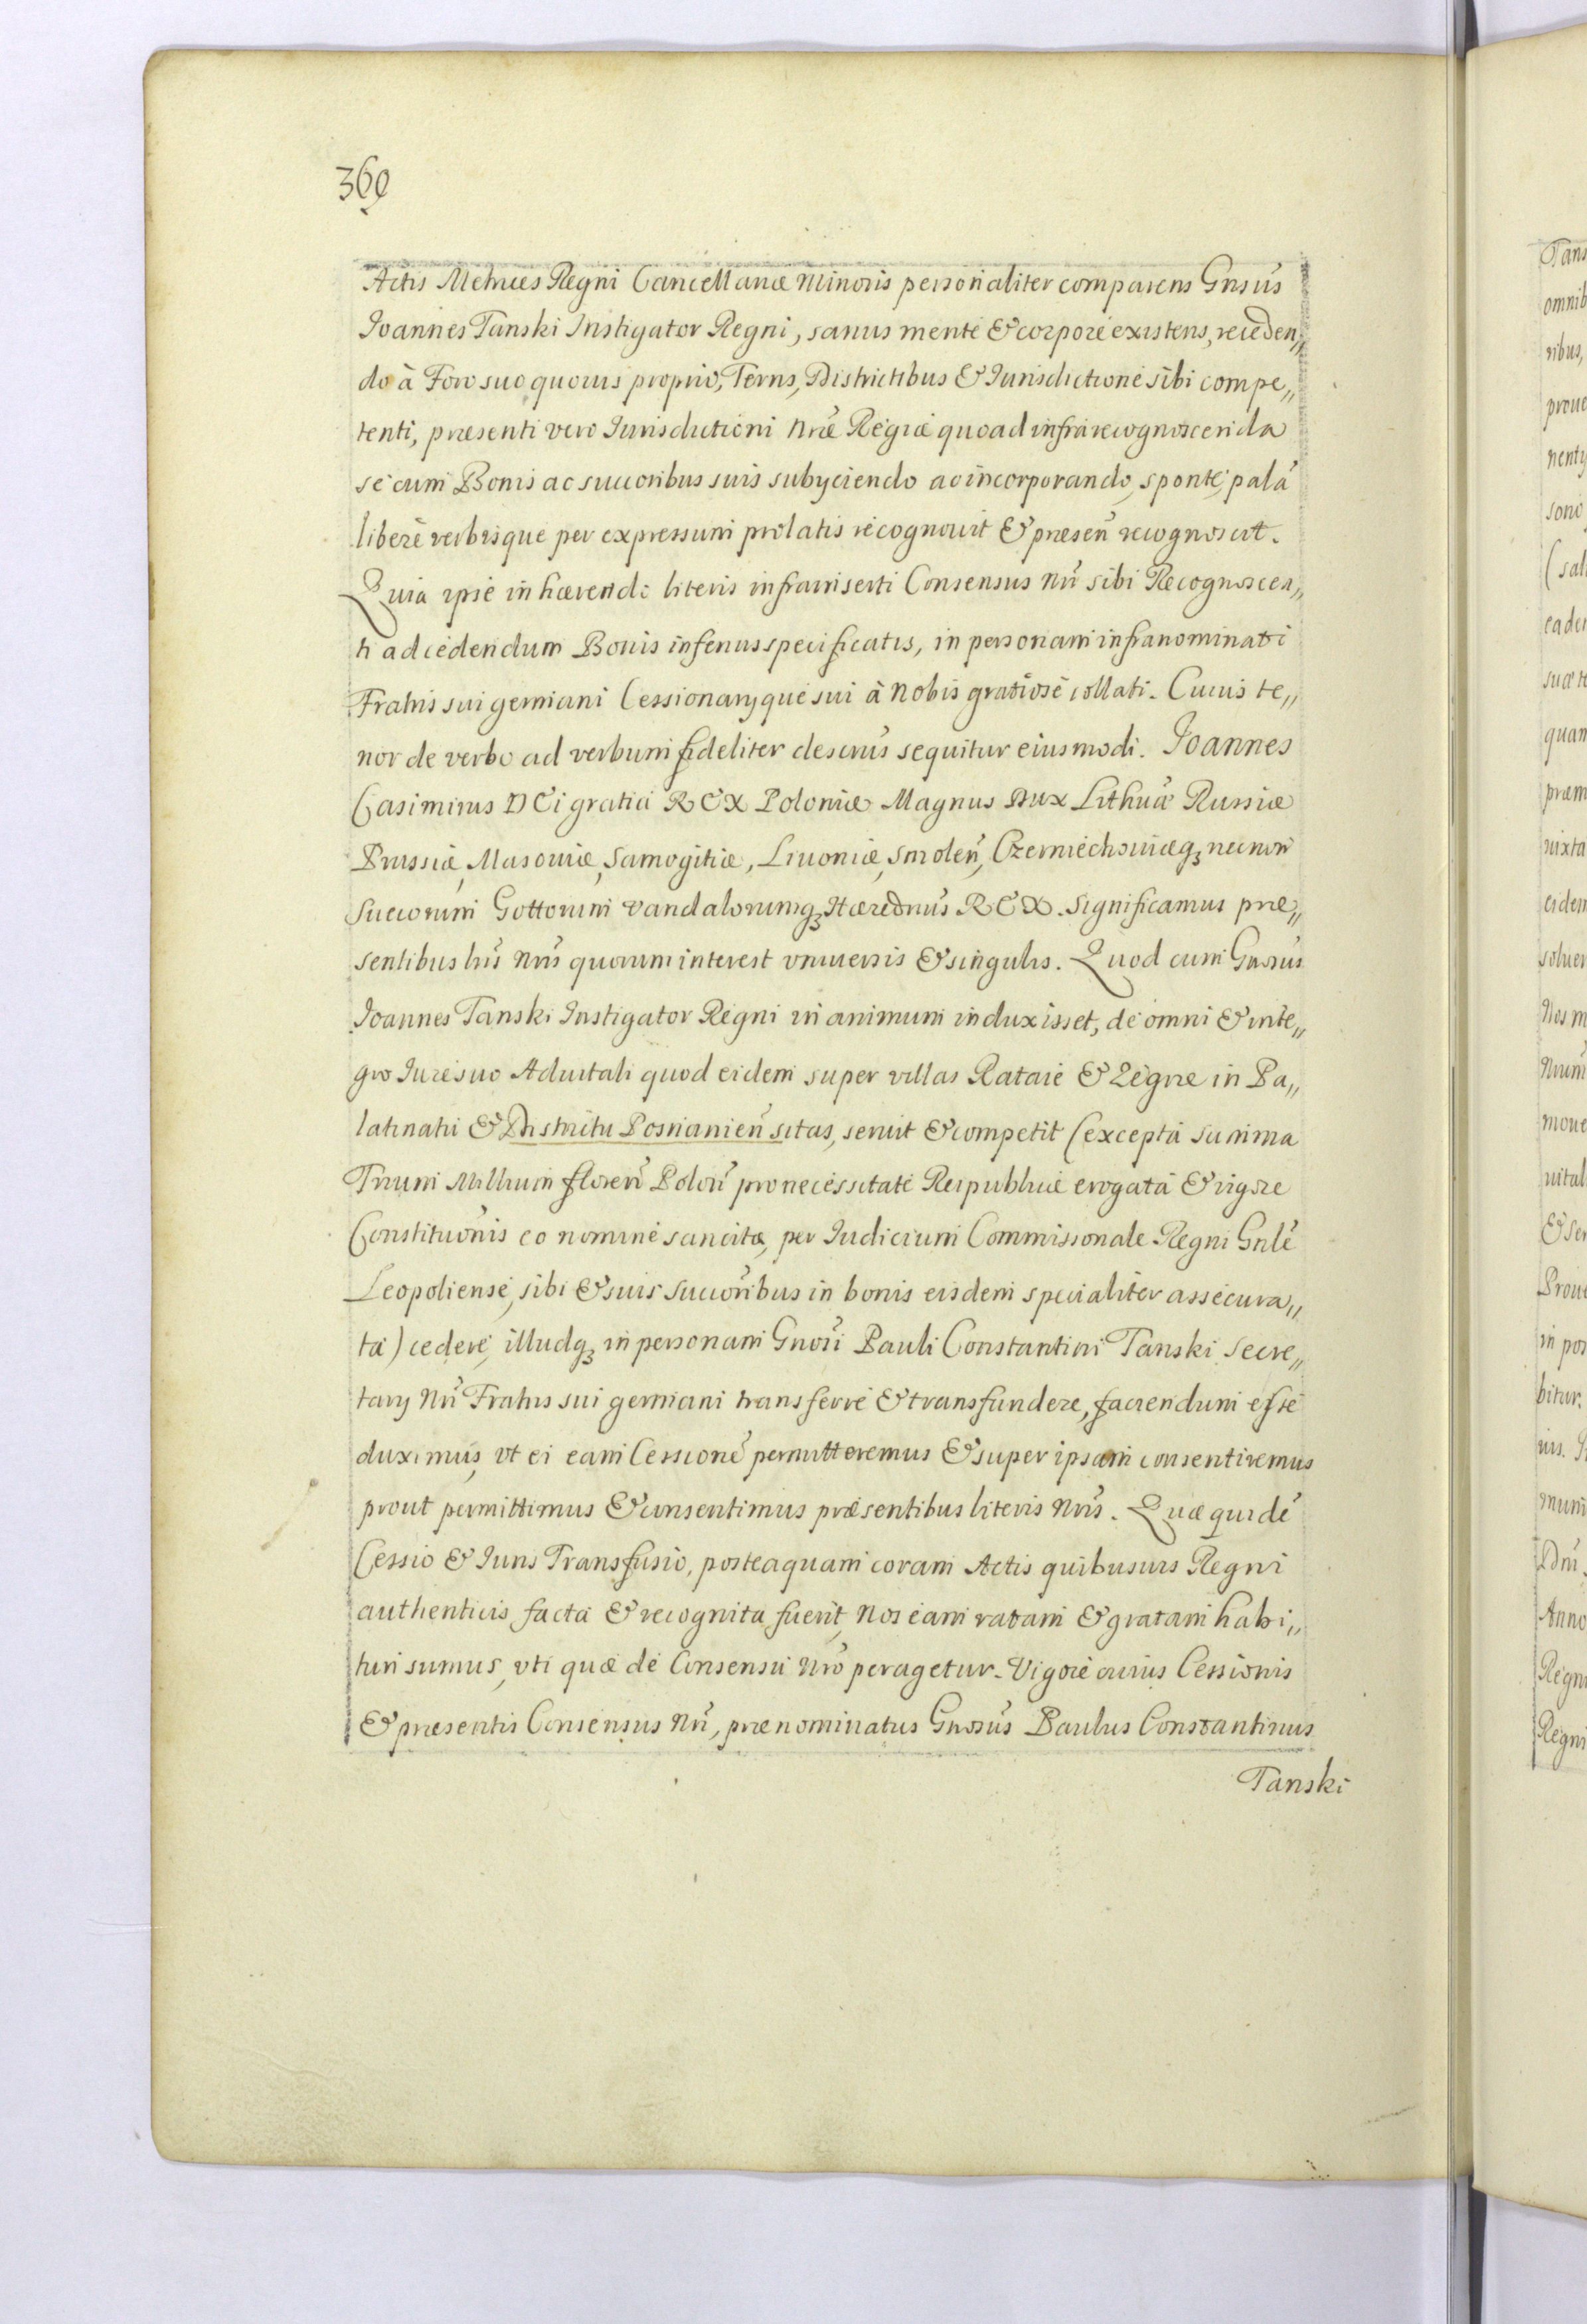 369
Actis Metrices Regni Cancellariæ Minoris personaliter comparens Gnsus
Joannes Tanski Instigator Regni, sanus mente & corpore existens, receden„
do à Foro suo quovis proprio, Terris, Districtibus & Jurisdictione sibi compe„
tenti, præsenti vero Jurisdictioni Nræ Regiæ quoad infra recognoscenda
se cum Bonis ac succoribus suis subyciendo ac incorporando, sponte, palã
libere verbisque per expressum prolatis recognovit & præsen̄ recognoscit.
Quia ipse inhærendo literis infrainserti Consensus Nri sibi Recognoscen„
ti ad cedendum Bonis inferius specificatis, in personam infranominati
Fratris sui germani Cessionaryque sui à Nobis gratiose collati. Cuius te„
nor de verbo ad verbum fideliter descrus sequitur eiusmodi. Joannes
Casimirus DEi gratia REX Poloniæ Magnus Dux Lithuæ Russiæ
Prussiæ, Masoviæ, Samogitiæ, Livoniæ, Smolen̄, Czerniechoviæq3 necnon
Suecorum Gottorum Vandalorumq3 Hæredrius REX. Significamus præ„
sentibus lris Nris quorum interest universis & singulis. Quod cum Gnosus
Joannes Tanski Instigator Regni in animum induxisset, de omni & inte„
gro Jure suo Advitali quod eidem super villas Rataie & Zegrze in Pa„
latinatu & Districtu Posnanien̄ sitas, servit & competit (excepta summa
Trium Millium floren̄ Polon̄ pro necessitate Reipublicæ erogata & vigore
Constituõnis eo nomine sancitæ, per Judicium Commissionale Regni Gnle
Leopoliense, sibi & suis succoribus in bonis eisdem specialiter assecura„
ta) cedere, illudq3 in personam Gnosi Pauli Constantini Tanski Secre„
tary Nri Fratris sui germani transferre & transfundere, faciendum esse
duximus, ut ei eam Cessionẽ permitteremus & super ipsam consentiremus
prout permittimus & consentimus præsentibus literis Nris. Quæ quidẽ
Cessio & Juris Transfusio, posteaquam coram Actis quibusvis Regni
authenticis facta & recognita fuerit, Nos eam ratam & gratam habi„
turi sumus, uti quæ de Consensu Nro peragetur. Vigore cuius Cessionis
& præsentis Consensus Nri, prænominatus Gnosus Paulus Constantinus
Tanski